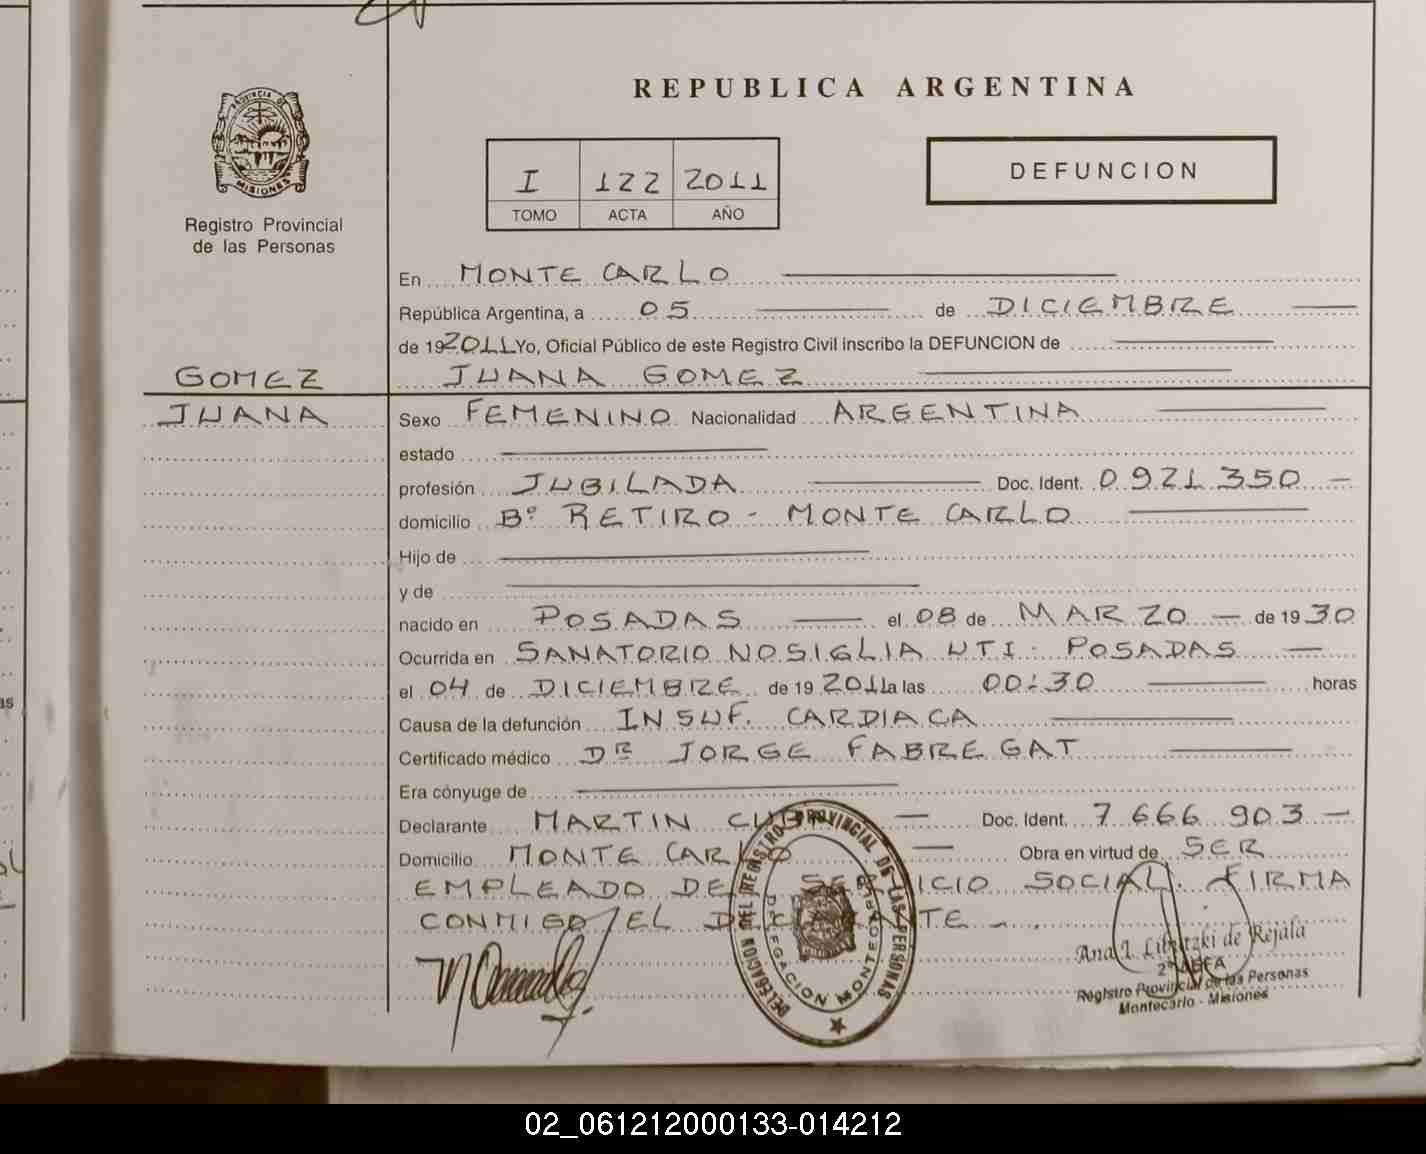 REPUBLICA ARGENTINA
PROVINCIA DE MISIONES
Registro Provincial
de las Personas
I 122 2011
TOMO ACTA AÑO
DEFUNCION
En MONTE CARLO
República Argentina, a 05 de DICIEMBRE
de 19 2011 Yo, Oficial Público de este Registro Civil inscribo la DEFUNCION de
GOMEZ
JUANA GOMEZ
JUANA
Sexo FEMENINO Nacionalidad ARGENTINA
estado
profesión JUBILADA Doc. Ident. 0921350 -
domicilio Bº RETIRO - MONTE CARLO
Hijo de
y de
nacido en POSADAS el 08 de MARZO - de 19 30
Ocurrida en SANATORIO NOSIGLIA UTI - POSADAS
el 04 de DICIEMBRE de 19 2011 a las 00:30 horas
Causa de la defunción INSUF. CARDIACA
Certificado médico DR JORGE FABREGAT
Era cónyuge de
Declarante MARTIN Doc. Ident. 7.666.903 -
Domicilio MONTE CARLO Obra en virtud de SER
EMPLEADO DEL SERVICIO SOCIAL. FIRMA
CONMIGO EL DECLARANTE -.
DELEGACION DEL REGISTRO PROVINCIAL DE LAS PERSONAS
DELEGACION MONTECARLO
Ana I. de Rejala
2ª JEFA
Registro Provincial de las Personas
Montecarlo - Misiones
as
02_061212000133-014212